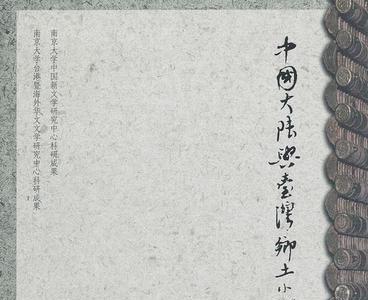 中國大陸與臺灣鄉土小
南京大学中国新文学研究中心科研成果
南京大学台港暨海外华文文学研究中心科研成果